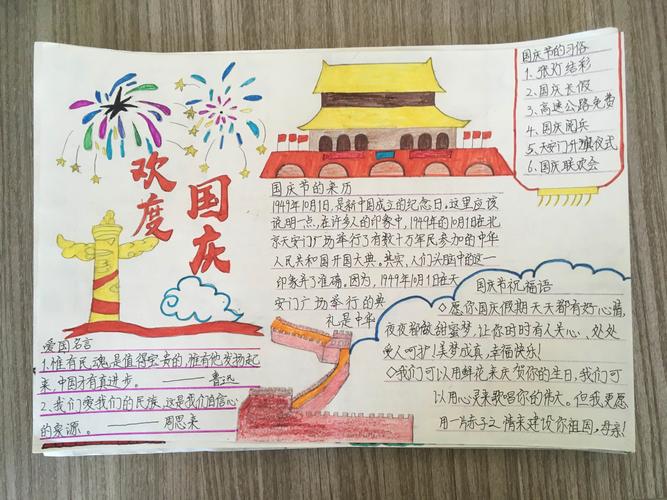 欢度
国庆
国庆节的习俗
1、张灯结彩
2、国庆长假
3、高速公路免费
4、国庆阅兵
5、天安门升旗仪式
6、国庆联欢会
国庆节的来历
1949年10月1日,是新中国成立的纪念日。这里应该
说明一点,在许多人的印象中,1949年的10月1日在北
京天安门广场举行了有数十万军民参加的中华
人民共和国开国大典。其实,人们头脑中的这一
印象并不准确。因为,1949年10月1日在天
安门广场举行的典
礼是中华
国庆节祝福语
◇愿你国庆假期天天都有好心情,
夜夜都做甜蜜梦,让你时时有人关心、处处
受人呵护!美梦成真,幸福快乐!
◇我们可以用鲜花来庆贺你的生日,我们可
以用心灵来歌唱你的伟大。但我更愿
用一片赤子之情来建设你祖国,母亲!
爱国名言
1、惟有民魂,是值得宝贵的,惟有他发扬起
来,中国才有真进步。——鲁迅
2、我们爱我们的民族,这是我们自信心
的泉源。——周恩来